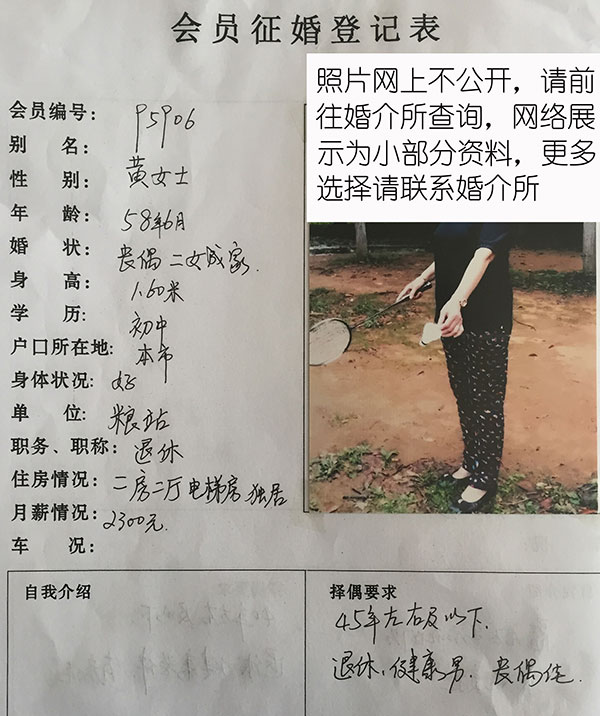 会员征婚登记表
照片网上不公开，请前
往婚介所查询，网络展
示为小部分资料，更多
选择请联系婚介所
会员编号: P5906
别 名:
性 别: 黄女士
年 龄: 58年6月
婚 状: 丧偶 二女成家.
身 高: 1.60米
学 历: 初中
户口所在地: 本市
身体状况: 好
单 位: 粮站
职务、职称: 退休
住房情况: 二房二厅电梯房 独居
月薪情况: 2300元.
车 况:
自我介绍
择偶要求
45年左右及以下.
退休、健康男. 丧偶佳.